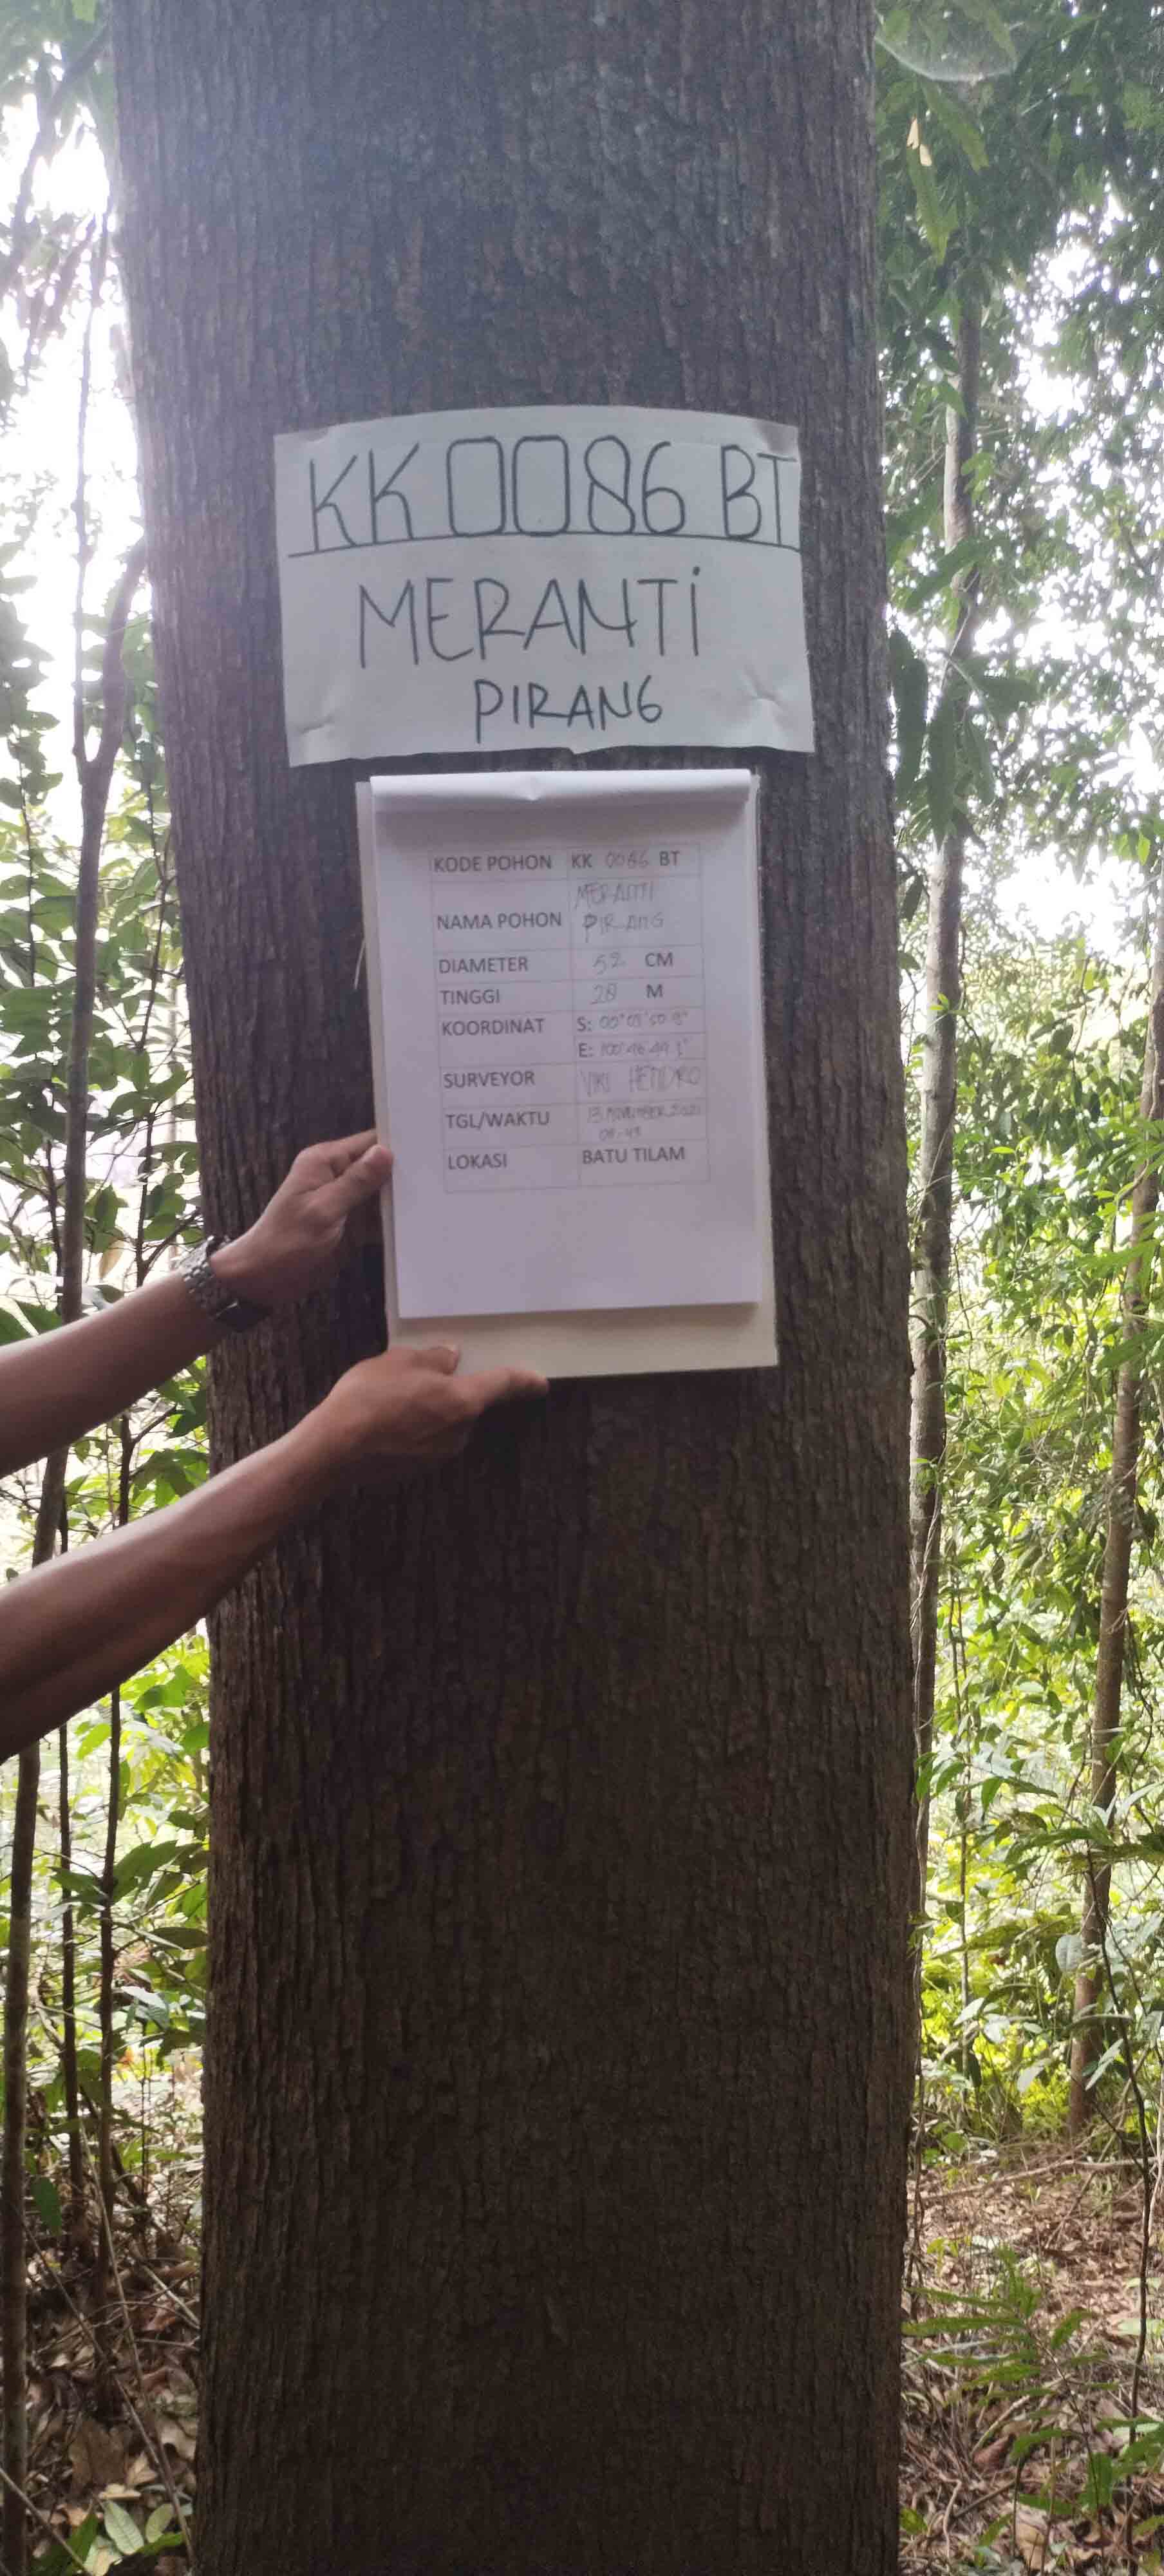 KK0086 BT
MERANTI
PIRANG
KODE POHON KK 0086 BT
NAMA POHON MERANTI PIRANG
DIAMETER 52 CM
TINGGI 28 M
KOORDINAT S:
E:
SURVEYOR VIKI HENDRO
TGL/WAKTU 13 NOVEMBER
LOKASI BATU TILAM